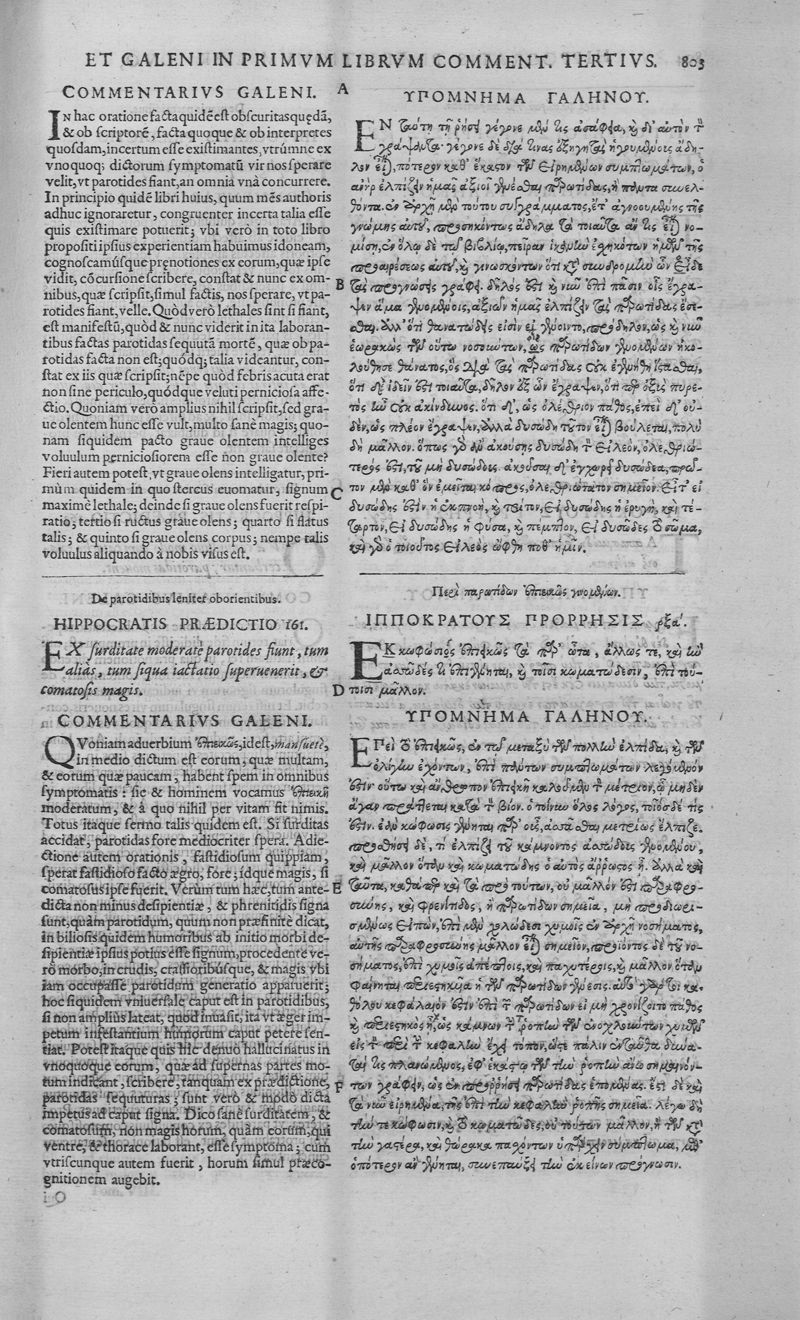 ET GALENI IN PRIMVM LIBRVM COMMENT. TERTIVS. 803
COMMENTARIVS GALENI.
IN hac oratione facta quidē eſt obſcuritas quędā,
& ob ſcriptorē, facta quoque & ob interpretes
quoſdam, incertum eſſe exiſtimantes, vtrùmne ex
vnoquoq; dictorum ſymptomatū vir nos ſperare
velit, vt parotides fiant, an omnia vnà concurrere.
In principio quidē libri huius, quum mēs authoris
adhuc ignoraretur, congruenter incerta talia eſſe
quis exiſtimare potuerit; vbi verò in toto libro
propoſiti ipſius experientiam habuimus idoneam,
cognoſcamúſque pręnotiones ex eorum, quæ ipſe
vidit, cōcurſione ſcribere, conſtat & nunc ex om-
nibus, quæ ſcripſit, ſimul factis, nos ſperare, vt pa-
rotides fiant, velle. Quòd verò lethales ſint ſi fiant,
eſt manifeſtū, quòd & nunc viderit in ita laboran-
tibus factas parotidas ſequutā mortē, quæ ob pa-
rotidas facta non eſt; quódq; talia videantur, con-
ſtat ex iis quæ ſcripſit; nēpe quòd febris acuta erat
non ſine periculo, quódque veluti pernicioſa affe-
ctio. Quoniam verò amplius nihil ſcripſit, ſed gra-
ue olentem hunc eſſe vult, multo ſanè magis; quo-
nam ſiquidem pacto graue olentem intelliges
voluulum pernicioſiorem eſſe non graue olente?
Fieri autem poteſt, vt graue olens intelligatur, pri-
mùm quidem in quo ſtercus euomatur, ſignum
maximè lethale; deinde ſi graue olens fuerit reſpi-
ratio; tertio ſi ructus graue olens; quarto ſi flatus
talis; & quinto ſi graue olens corpus; nempe talis
voluulus aliquando à nobis viſus eſt.
De parotidibus leniter oborientibus.
HIPPOCRATIS PRÆDICTIO 161.
EX ſurditate moderatè parotides fiunt, tum
aliàs, tum ſiqua iactatio ſuperuenerit, &
comatoſis magis.
COMMENTARIVS GALENI.
QVoniam aduerbium ἐπιεικῶς, id eſt, manſuetè,
in medio dictum eſt eorum, quæ multam,
& eorum quæ paucam, habent ſpem in omnibus
ſymptomatis: ſic & hominem vocamus ἐπιεικῆ
moderatum, & à quo nihil per vitam fit nimis.
Totus itaque ſermo talis quidem eſt. Si ſurditas
accidat, parotidas fore mediocriter ſpera. Adie-
ctione autem orationis, faſtidioſum quippiam,
ſperat faſtidioſo facto ægro, fore; idque magis, ſi
comatoſus ipſe fuerit. Verùm tum hæc, tum ante-
dicta non minus deſipientiæ, & phrenitidis ſigna
ſunt, quàm parotidum, quum non præfinitè dicat,
in bilioſis quidem humoribus ab initio morbi de-
ſipientiæ ipſius potius eſſe ſignum, procedente ve-
rò morbo, in crudis, craſſioribúſque, & magis vbi
iam occupaſſe parotidum generatio apparuerit;
hoc ſiquidem vniuerſale caput eſt in parotidibus,
ſi non amplius lateat, quod inuaſit, ita vt æger im-
petum infeſtantium humorum caput petere ſen-
tiat. Poteſt itaque quis hîc denuò hallucinatus in
vnoquoque eorum, quæ ad ſupernas partes mo-
tum indicant, ſcribere, tanquam ex prædictione,
parotidas ſequuturas; ſunt verò & modò dicta
impetus ad caput ſigna. Dico ſanè ſurditatem, &
comatoſum, non magis horum, quàm eorum, qui
ventre, & thorace laborant, eſſe ſymptoma; cum
vtriſcunque autem fuerit, horum ſimul præco-
gnitionem augebit.
A
B
C
D
E
F
ΥΠΟΜΝΗΜΑ ΓΑΛΗΝΟΥ.
ΕΝ ταύτῃ τῇ ῥήσει γέγονε μέν τις ἀσάφεια, καὶ δι' αὐτὸν τὸν
γράψαντα· γέγονε δὲ
λον εἶναι, πότερον καθ' ἕκαστον τῶν εἰρημένων συμπτωμάτων, ὁ
ἀνὴρ ἐλπίζειν ἡμᾶς ἀξιοῖ γενέσθαι παρωτίδας, ἢ πάντα συνελ-
θόντα. ἐν ἀρχῇ μὲν τούτου συγγράμματος, ἔτ' ἀγνοουμένης τῆς
γνώμης αὐτοῦ, ἄδηλα τὰ τοιαῦτα ἄν τις εἶναι νο-
μίσῃ, ἐν ὅλῳ δὲ τῷ βιβλίῳ, πεῖραν ἱκανὴν ἐσχηκότων ἡμῶν τῆς
προαιρέσεως αὐτοῦ, καὶ γινωσκόντων ὅτι κατὰ συνδρομὴν ὧν εἶδε
τὰς προγνώσεις γράφει. δῆλος ἐστὶ καὶ νῦν ἐπὶ πᾶσιν οἷς ἔγρα-
ψεν ἅμα γενομένοις, ἀξιῶν ἡμᾶς ἐλπίζειν τὰς παρωτίδας ἔσε-
σθαι. ἀλλ' ὅτι θανατώδεις εἰσὶν εἰ γένοιντο, πρόδηλον, ὡς καὶ νῦν
ἑωρακὼς τῶν οὕτω νοσούντων, ὡς παρωτίδων γενομένων ἠκο-
λούθησε θάνατος, ὃς διὰ τὰς παρωτίδας οὐκ ἐγενήθη
ὅτι δ' ἰδεῖν ἐστι τοιαῦτα, δῆλον ἐξ ὧν ἔγραψεν, ὅτι πυρε-
τὸς ἦν οὐκ ἀκίνδυνος. ὅτι δ', ὡς ὀλέθριον πάθος, ἐπεὶ δ' οὐ-
δὲν, ὡς πλέον ἔγραψεν, ἀλλὰ δυσώδη τοῦτον εἶναι βούλεται, πολὺ
δὴ μᾶλλον. ὅπως γὰρ ἂν ἀκούσῃς δυσώδη τὸν εἰλεὸν, ὀλεθριώ-
τερός ἐστι, τοῦ μὴ δυσώδους. ἀκοῦσαι δ' ἐγχωρεῖ δυσώδεα, πρῶ-
τον μὲν καθ' ὃν ἐμεῖται κόπρος, ὀλεθριώτατον σημεῖον. εἶτ' εἰ
δυσώδης εἴη ἡ ἐκπνοὴ, καὶ τρίτον, εἰ δυσώδης ἡ ἐρυγὴ, καὶ τέ-
ταρτον, εἰ δυσώδης ἡ φῦσα, καὶ πέμπτον, εἰ δυσῶδες τὸ σῶμα,
καὶ γὰρ ὁ τοιοῦτος εἰλεὸς ὤφθη ποθ' ἡμῖν.
Περὶ παρωτίδων ἐπιεικῶς γινομένων.
ΙΠΠΟΚΡΑΤΟΥΣ ΠΡΟΡΡΗΣΙΣ ρξα΄.
ΕΚ κωφώσιος ἐπιεικῶς τὰ παρ' ὦτα, ἄλλως τε, καὶ ἢν
ἀσῶδές τι ἐπιγένηται, καὶ τοῖσι κωματώδεσιν, ἐπὶ τού-
τοισι μᾶλλον.
ΥΠΟΜΝΗΜΑ ΓΑΛΗΝΟΥ.
ΕΠεὶ τὸ ἐπιεικῶς, ἐν τῷ μεταξὺ τῶν πολλὴν ἐλπίδα, καὶ τῶν
ὀλίγην ἐχόντων, ἐπὶ πάντων συμπτωμάτων λεγόμενόν
ἐστιν· οὕτω καὶ ἄνθρωπον ἐπιεικῆ καλοῦμεν τὸν μέτριον, ᾧ μηδὲν
ἄγαν κατὰ τὸν βίον. ὁ τοίνυν ὅλος λόγος, τοιόσδε τίς
ἐστιν. ἐὰν κώφωσις γένηται παρ' οὖς, μετρίως ἔλπιζε.
προσθήσει δὲ, τι ἐλπίζει τοῦ κάμνοντος ἀσώδους γενομένου,
καὶ μᾶλλον ὅταν καὶ κωματώδης ὁ αὐτὸς ἄρρωστος ᾖ. ἀλλὰ καὶ
ταῦτα, καὶ τὰ πρὸ τούτων, οὐ μᾶλλον ἐστὶ παραφρο-
σύνης, καὶ φρενίτιδος, ἢ παρωτίδων σημεῖα, μὴ προσδιωρι-
σμένως εἰπὼν, ἐπὶ μὲν χολώδεσι χυμοῖς ἐν ἀρχῇ νοσήματος,
αὐτῆς παραφροσύνης μᾶλλον εἶναι σημεῖον, προϊόντος δὲ τοῦ νο-
σήματος, ἐπὶ χυμοῖς ἀπέπτοις, καὶ παχυτέροις, καὶ μᾶλλον ὅταν
φαίνηται ἡ τῶν παρωτίδων γένεσις.
θόλου κεφάλαιόν ἐστιν ἐπὶ παρωτίδων εἰ μὴ χρονίζοι τὸ πάθος
κάμνων τὴν ῥοπὴν τῶν ἐνοχλούντων
εἰς τὸν περὶ τὴν κεφαλὴν ἔχῃ τόπον, ὥστε πάλιν ἐνταῦθα δύνα-
ταί τις πλανώμενος, ἐφ' ἑκάστῳ τῶν τὴν ῥοπὴν ἄνω σημαινόν-
των γράφειν, ὡς ἐν προρρήσει παρωτίδας ἑπομένας. ἔστι δὲ καὶ
τὰ νῦν εἰρημένα, τῆς ἐπὶ τὴν κεφαλὴν ῥοπῆς σημεῖα. λέγω δὴ
τήν τε κώφωσιν, καὶ τὸ κωματῶδες, οὐ τούτων μᾶλλον, ἢ τῶν
τὴν γαστέρα, καὶ θώρακα πασχόντων ὑπάρχειν σύμπτωμα, μεθ'
ὁπότερον ἂν γένηται, συνεπαύξει τὴν ἐκείνων πρόγνωσιν.